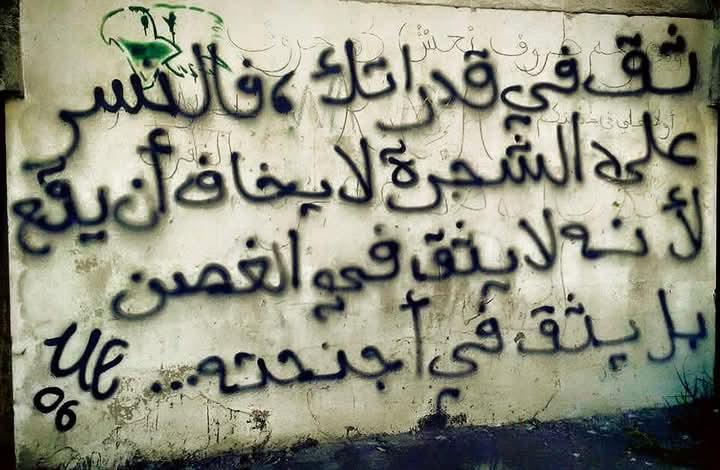 ثق في قدراتك، فالنسر
على الشجرة لا يخاف أن يقع
لأنه لا يثق في الغصن
بل يثق في أجنحته...
UE
06